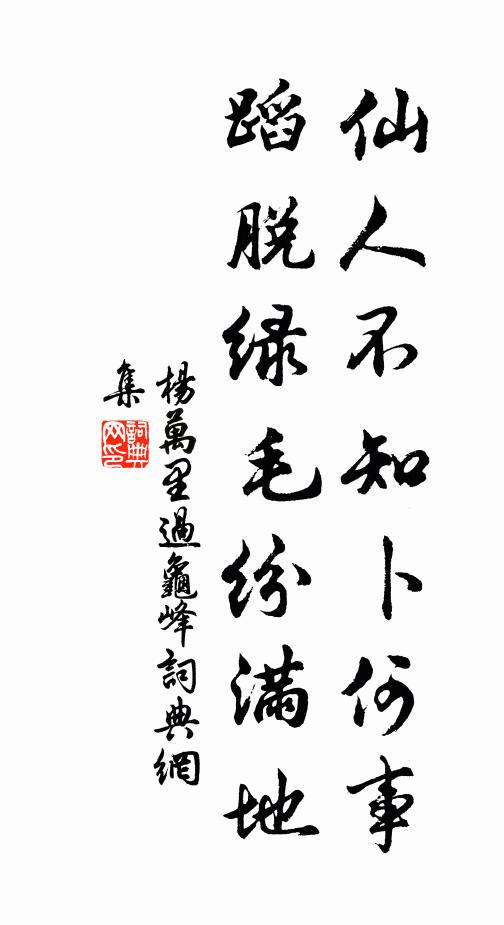 仙人不知卜何事
蹈脱緑毛紛满地
楊萬里過龜峰詞典網
集
詞典
网印